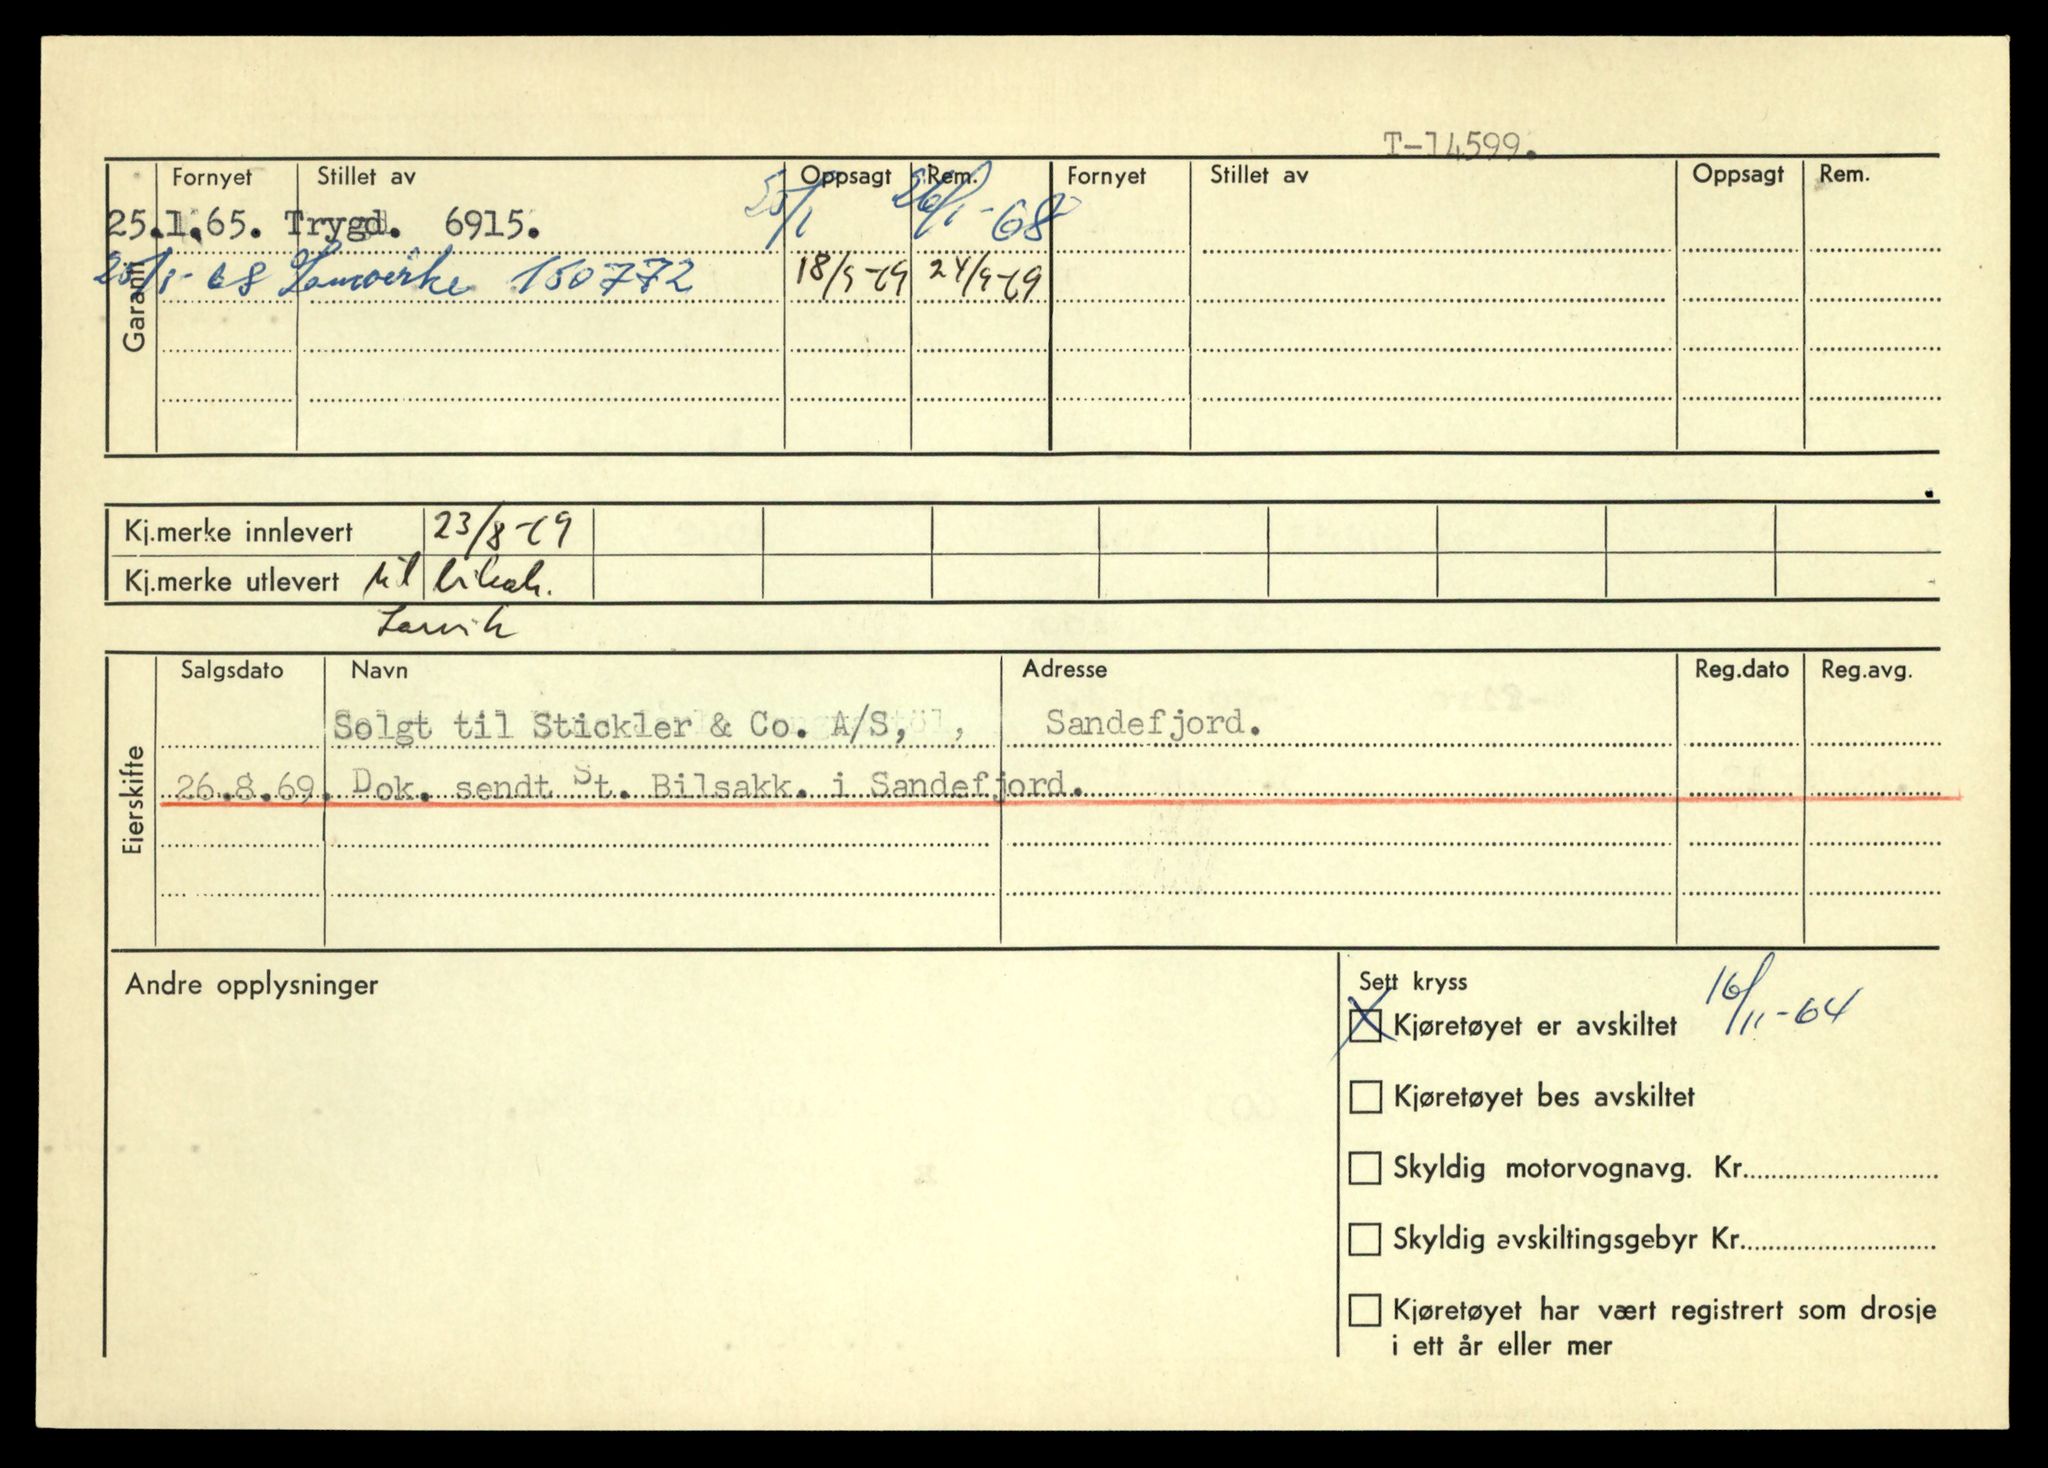 T-14599.
Garanti
Fornyet Stillet av Oppsagt Rem. Fornyet Stillet av Oppsagt Rem.
25.1.65. Trygd. 6915. 25/1 26/1-68
25/1-68 Samvirke 150772 18/9-69 24/9-69
Kj.merke innlevert 23/8-69
Kj.merke utlevert til bilsak.
Larvik
Eierskifte
Salgsdato Navn Adresse Reg.dato Reg.avg.
Solgt til Stickler & Co. A/S, Sandefjord.
26.8.69. Dok. sendt St. Bilsakk. i Sandefjord.
Andre opplysninger
Sett kryss 16/11-64
X Kjøretøyet er avskiltet
Kjøretøyet bes avskiltet
Skyldig motorvognavg. Kr.
Skyldig avskiltingsgebyr Kr.
Kjøretøyet har vært registrert som drosje
i ett år eller mer